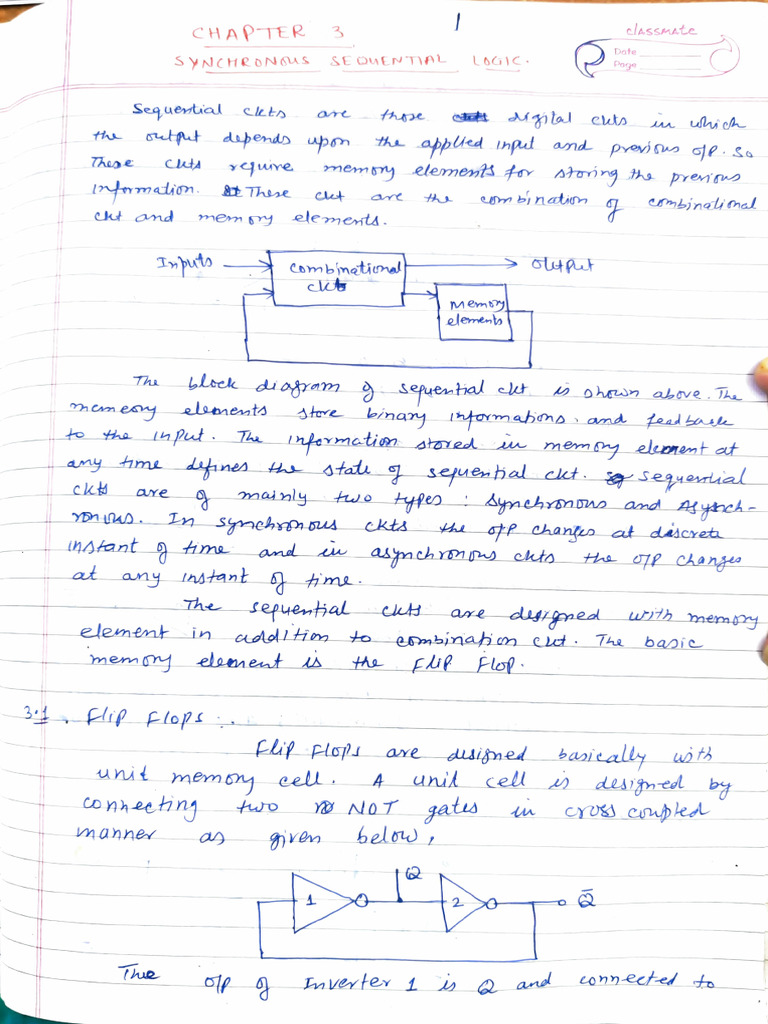 1
CHAPTER 3
SYNCHRONOUS SEQUENTIAL LOGIC.
classmate
Date
Page
Sequential ckts are those digital ckts in which
the output depends upon the applied input and previous o/p. So
These ckts require memory elements for storing the previous
information. These ckt are the combination of combinational
ckt and memory elements.
Inputs
combinational
ckt
Output
Memory
elements
The block diagram of sequential ckt is shown above. The
memeory elements store binary informations. and feedback
to the input. The information stored in memory element at
any time defines the state of sequential ckt. sequential
ckts are of mainly two types : Synchronous and Asynch-
ronous. In synchronous ckts the o/p changes at discrete
instant of time and in asynchronous ckts the o/p changes
at any instant of time.
The sequential ckts are designed with memory
element in addition to combination ckt. The basic
memory element is the Flip Flop.
3.1. Flip Flops :.
Flip Flops are designed basically with
unit memory cell. A unit cell is designed by
connecting two NOT gates in cross coupled
manner as given below,
1
Q
2
Q̄
The o/p of Inverter 1 is Q and connected to